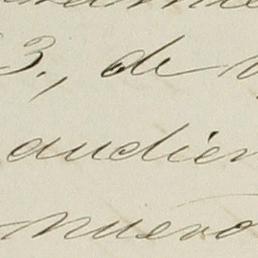 3., de
audien
nuevo